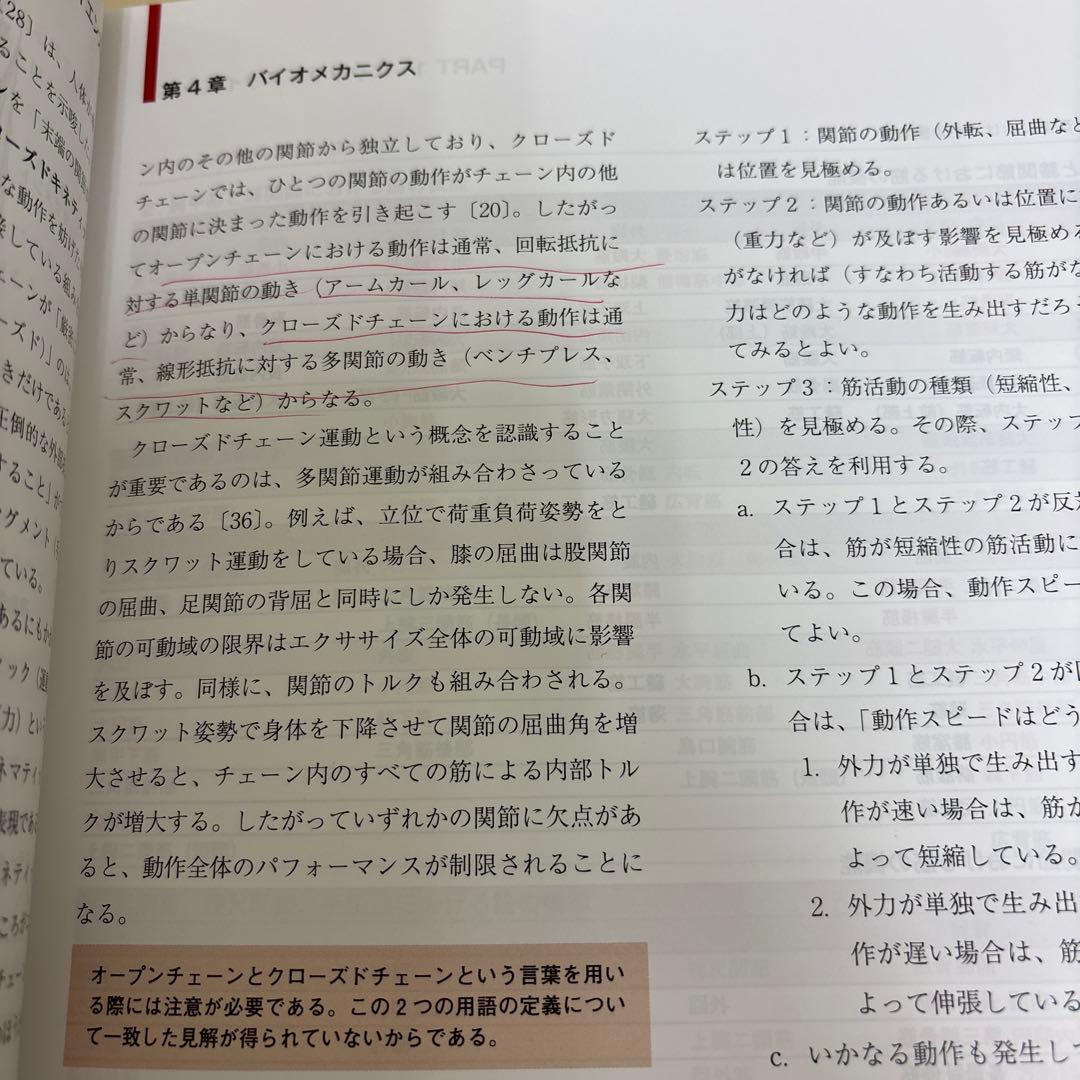 第4章 バイオメカニクス
ン内のその他の関節から独立しており、クローズド
チェーンでは、ひとつの関節の動作がチェーン内の他
の関節に決まった動作を引き起こす〔20〕。したがっ
てオープンチェーンにおける動作は通常、回転抵抗に
対する単関節の動き（アームカール、レッグカールな
ど）からなり、クローズドチェーンにおける動作は通
常、線形抵抗に対する多関節の動き（ベンチプレス、
スクワットなど）からなる。
クローズドチェーン運動という概念を認識すること
が重要であるのは、多関節運動が組み合わさっている
からである〔36〕。例えば、立位で荷重負荷姿勢をと
りスクワット運動をしている場合、膝の屈曲は股関節
の屈曲、足関節の背屈と同時にしか発生しない。各関
節の可動域の限界はエクササイズ全体の可動域に影響
を及ぼす。同様に、関節のトルクも組み合わされる。
スクワット姿勢で身体を下降させて関節の屈曲角を増
大させると、チェーン内のすべての筋による内部トル
クが増大する。したがっていずれかの関節に欠点があ
ると、動作全体のパフォーマンスが制限されることに
なる。
オープンチェーンとクローズドチェーンという言葉を用い
る際には注意が必要である。この2つの用語の定義につい
て一致した見解が得られていないからである。
ステップ1：関節の動作（外転、屈曲など
は位置を見極める。
ステップ2：関節の動作あるいは位置に
（重力など）が及ぼす影響を見極める
がなければ（すなわち活動する筋がな
力はどのような動作を生み出すだろ
てみるとよい。
ステップ3：筋活動の種類（短縮性、
性）を見極める。その際、ステップ
2の答えを利用する。
a. ステップ1とステップ2が反対
合は、筋が短縮性の筋活動に
いる。この場合、動作スピー
てよい。
b. ステップ1とステップ2が
合は、「動作スピードはどう
1. 外力が単独で生み出す
作が速い場合は、筋が
よって短縮している。
2. 外力が単独で生み出
作が遅い場合は、筋
よって伸張している
c. いかなる動作も発生して